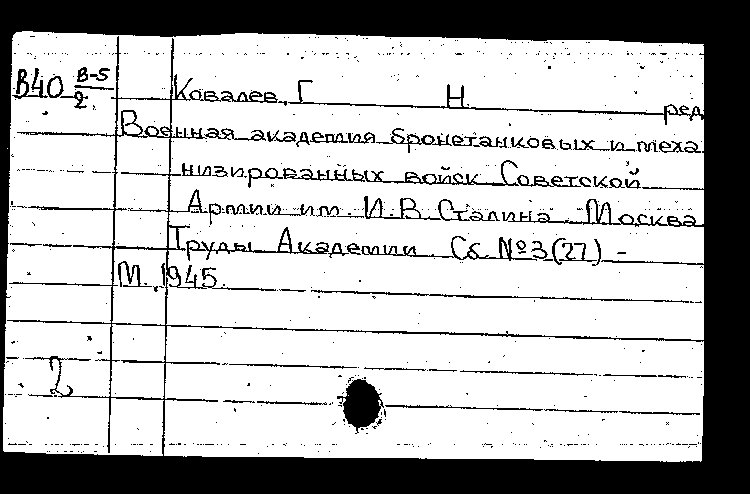 В40 В-5/2 Ковалев, Г Н. ред
Военная академия бронетанковых и меха
низированных войск Советской
Армии им. И.В. Сталина. Москва
Труды Академии. Сб. №3(27) -
М., 1945.
2